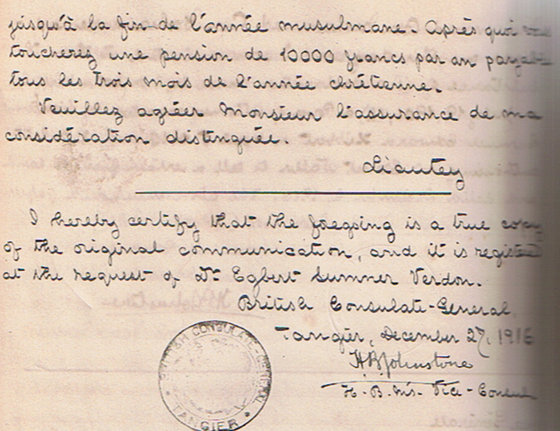 jusqu'à la fin de l'année musulmane. Après quoi vous
toucherez une pension de 10000 francs par an payable
tous les trois mois de l'année chrétienne.
Veuillez agréer Monsieur l'assurance de ma
considération distinguée.
Liautey
I hereby certify that the foegoing is a true copy
of the original communication, and it is registered
at the request of Dr. Egbert Sumner Verdon.
British Consulate-General,
Tangier, December 27, 1916
HBJohnstone
H. B. M's. Vice-Consul
BRITISH CONSULATE-GENERAL
TANGIER